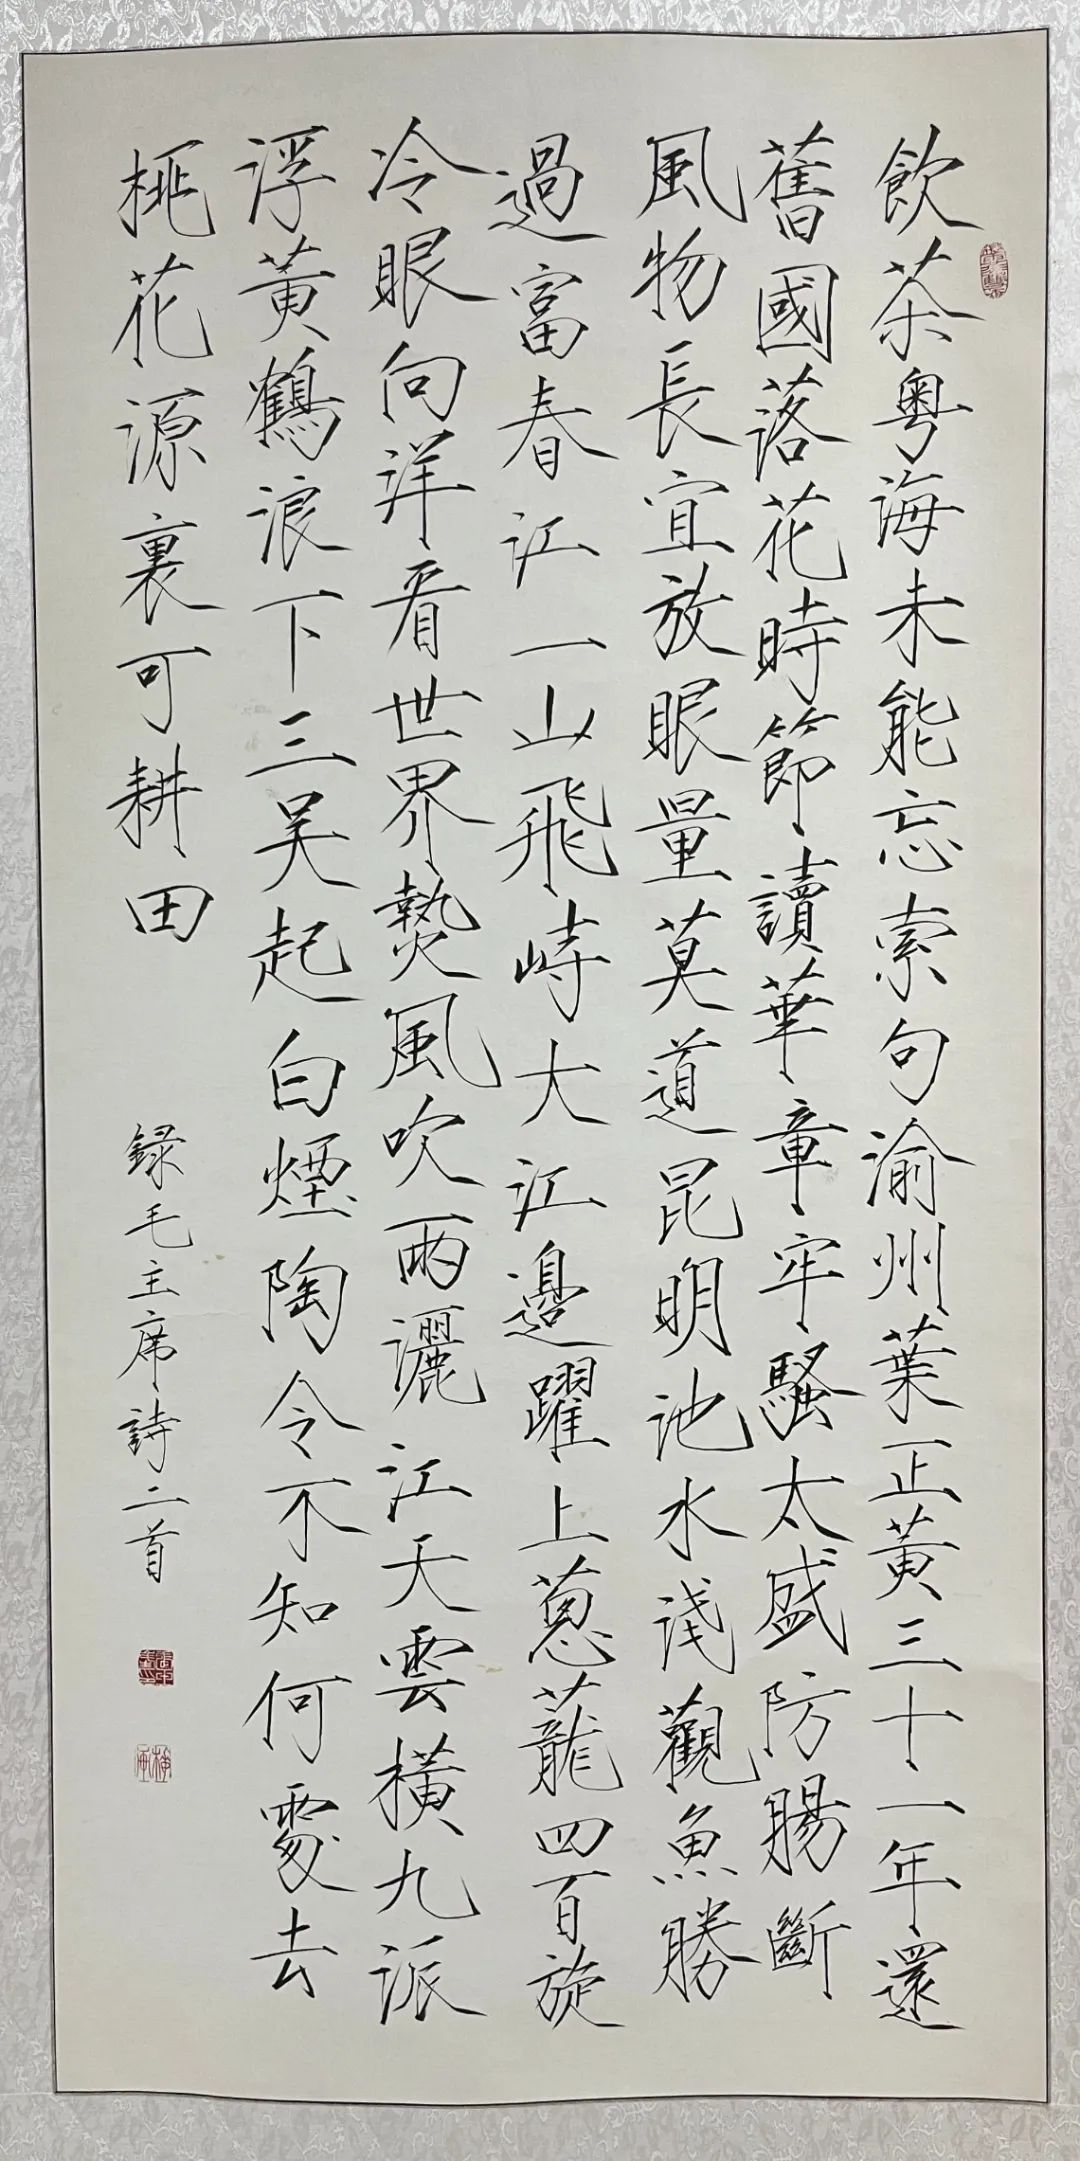 飲茶粵海未能忘索句渝州葉正黃三十一年還
舊國落花時節讀華章牢騷太盛防腸斷
風物長宜放眼量莫道昆明池水淺觀魚勝
過富春江一山飛峙大江邊躍上蔥蘢四百旋
冷眼向洋看世界熱風吹雨灑江天雲橫九派
浮黃鶴浪下三吳起白煙陶令不知何處去
桃花源裏可耕田
録毛主席詩二首